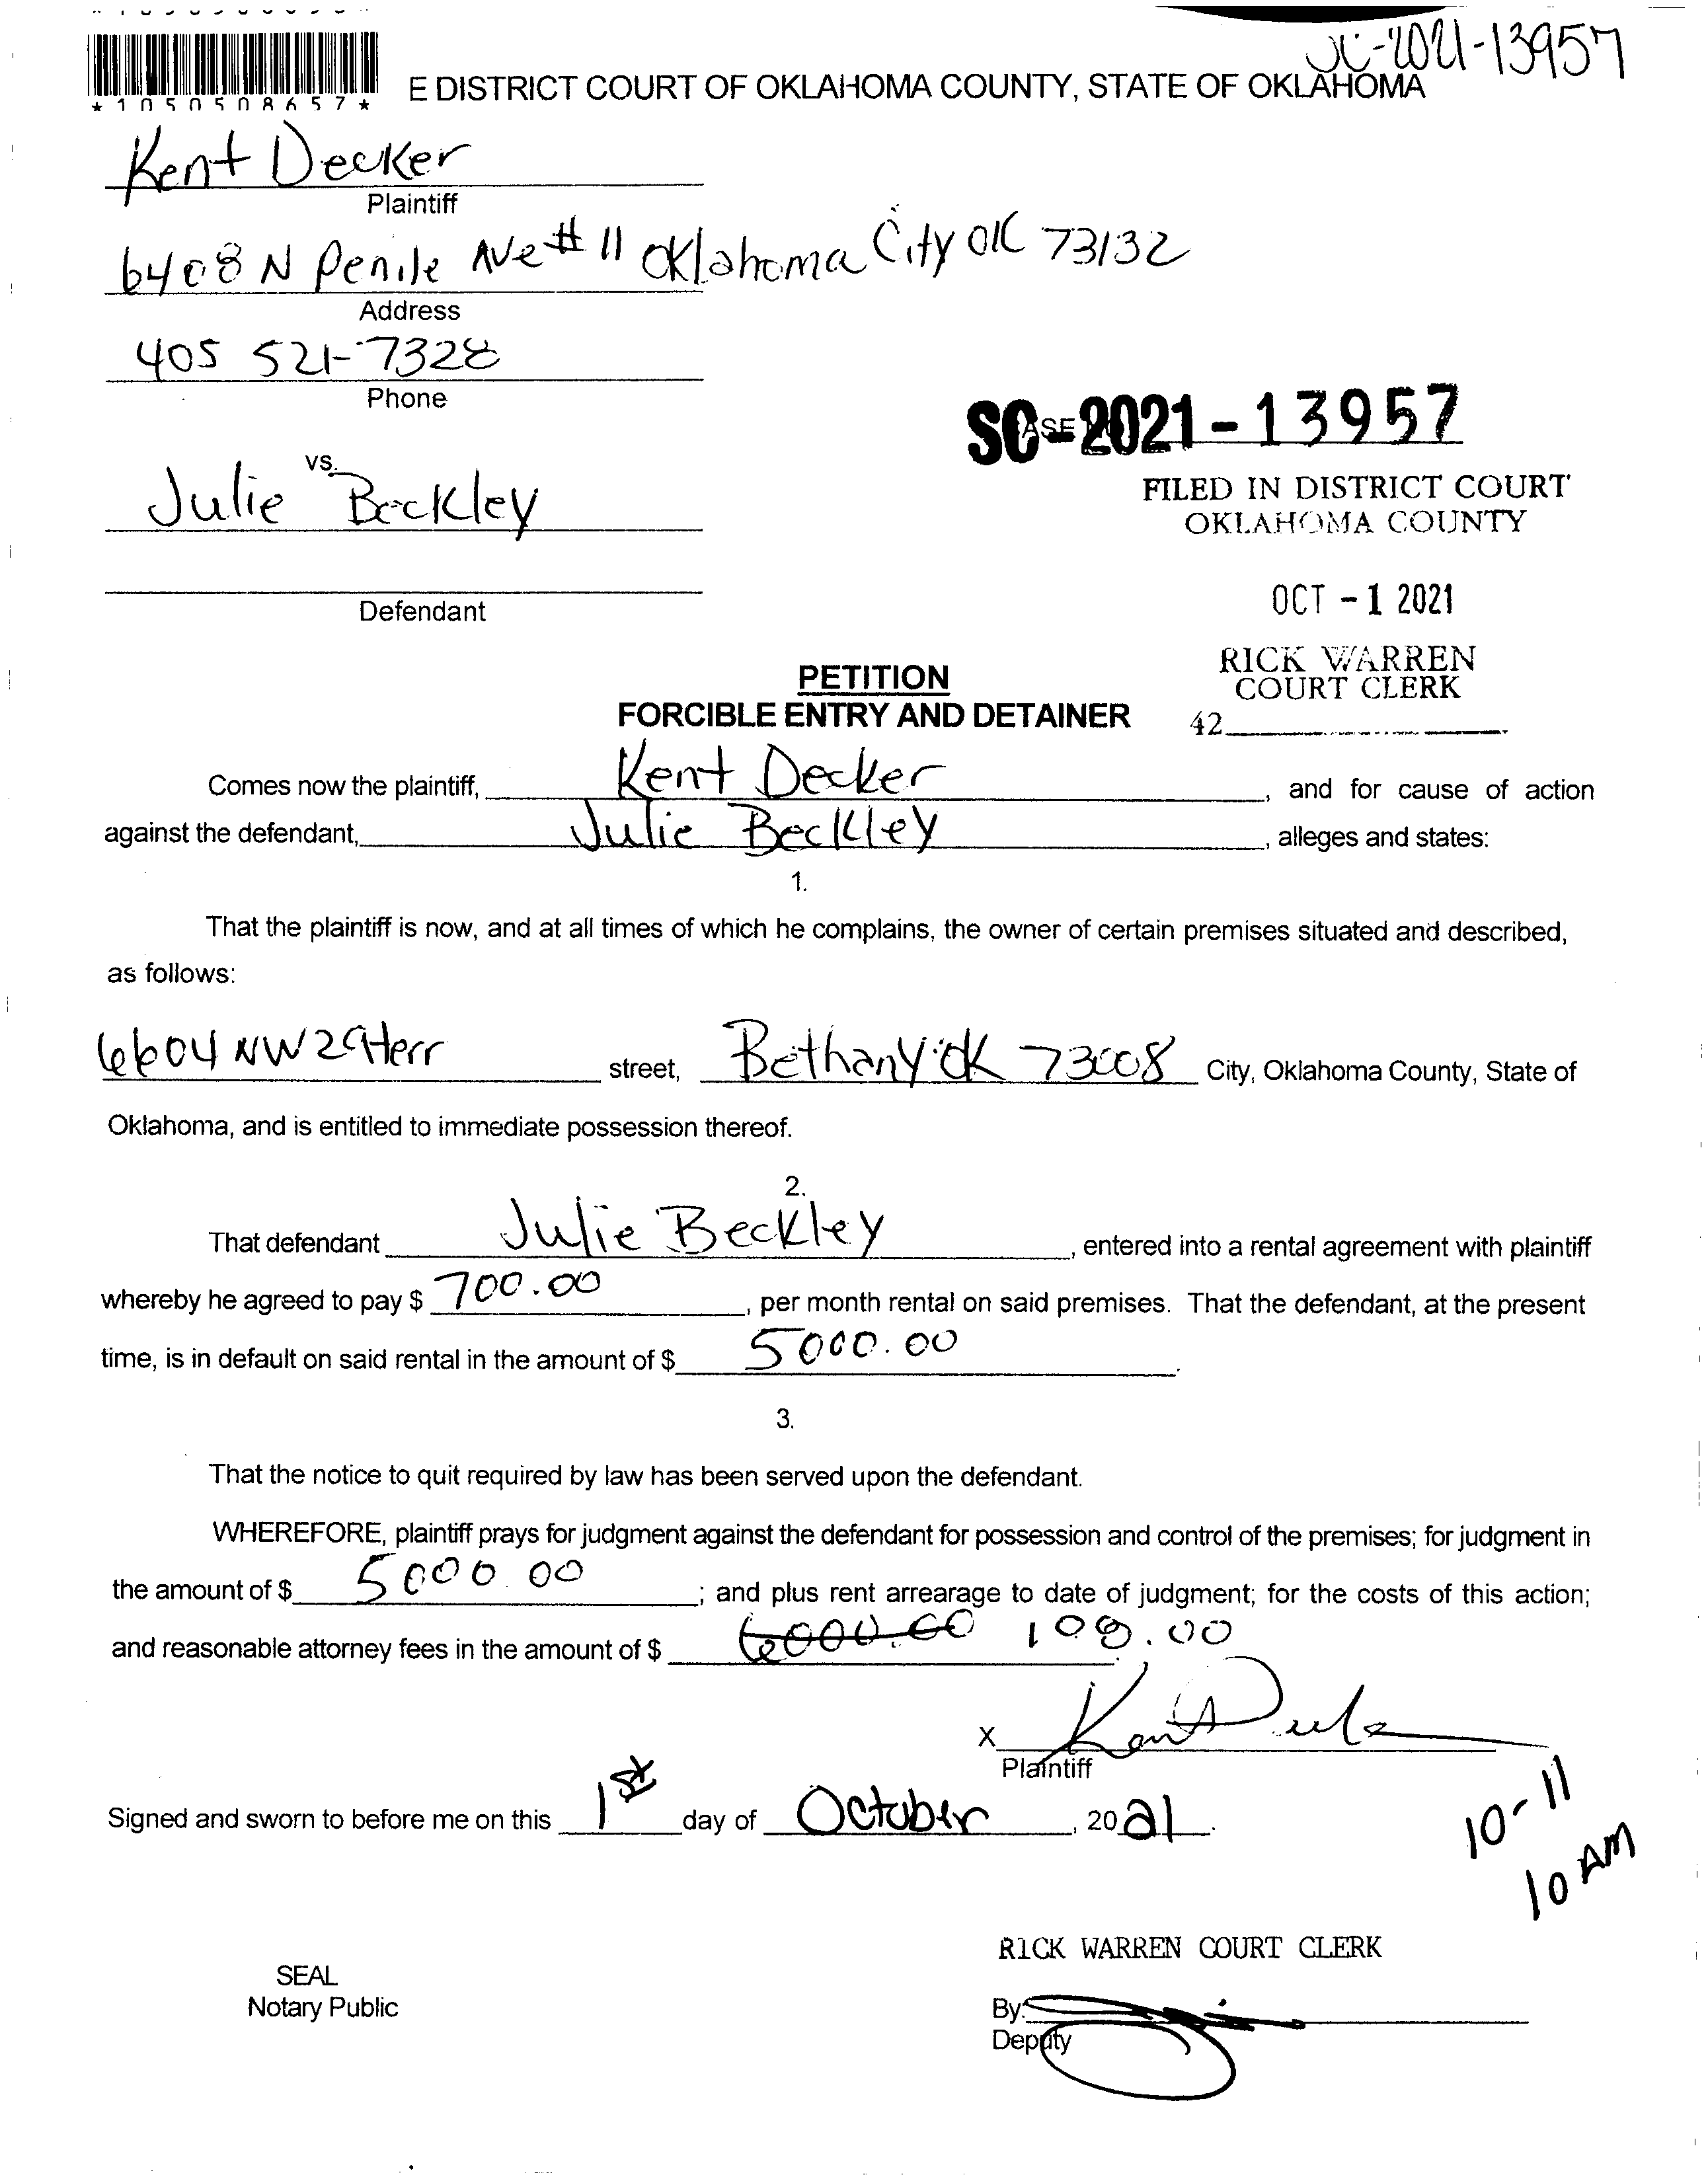 SC-2021-13957
*1050508657*
E DISTRICT COURT OF OKLAHOMA COUNTY, STATE OF OKLAHOMA
Kent Decker
Plaintiff
6408 N Penile Ave # 11 Oklahoma City OK 73132
Address
405 521-7328
Phone
SC-2021-13957
vs.
Julie Beckley
FILED IN DISTRICT COURT
OKLAHOMA COUNTY
Defendant
OCT - 1 2021
RICK WARREN
COURT CLERK
42
PETITION
FORCIBLE ENTRY AND DETAINER
Comes now the plaintiff, Kent Decker, and for cause of action
against the defendant, Julie Beckley, alleges and states:
1.
That the plaintiff is now, and at all times of which he complains, the owner of certain premises situated and described,
as follows:
6604 NW 29terr street, Bethany OK 73008 City, Oklahoma County, State of
Oklahoma, and is entitled to immediate possession thereof.
2.
That defendant Julie Beckley, entered into a rental agreement with plaintiff
whereby he agreed to pay $ 700.00, per month rental on said premises. That the defendant, at the present
time, is in default on said rental in the amount of $ 5000.00.
3.
That the notice to quit required by law has been served upon the defendant.
WHEREFORE, plaintiff prays for judgment against the defendant for possession and control of the premises; for judgment in
the amount of $ 5000 00; and plus rent arrearage to date of judgment; for the costs of this action;
and reasonable attorney fees in the amount of $ 6000.00 108.00
X Kent Decker
Plaintiff
Signed and sworn to before me on this 1st day of October, 2021.
10-11
10 AM
RICK WARREN COURT CLERK
SEAL
Notary Public
By:
Deputy